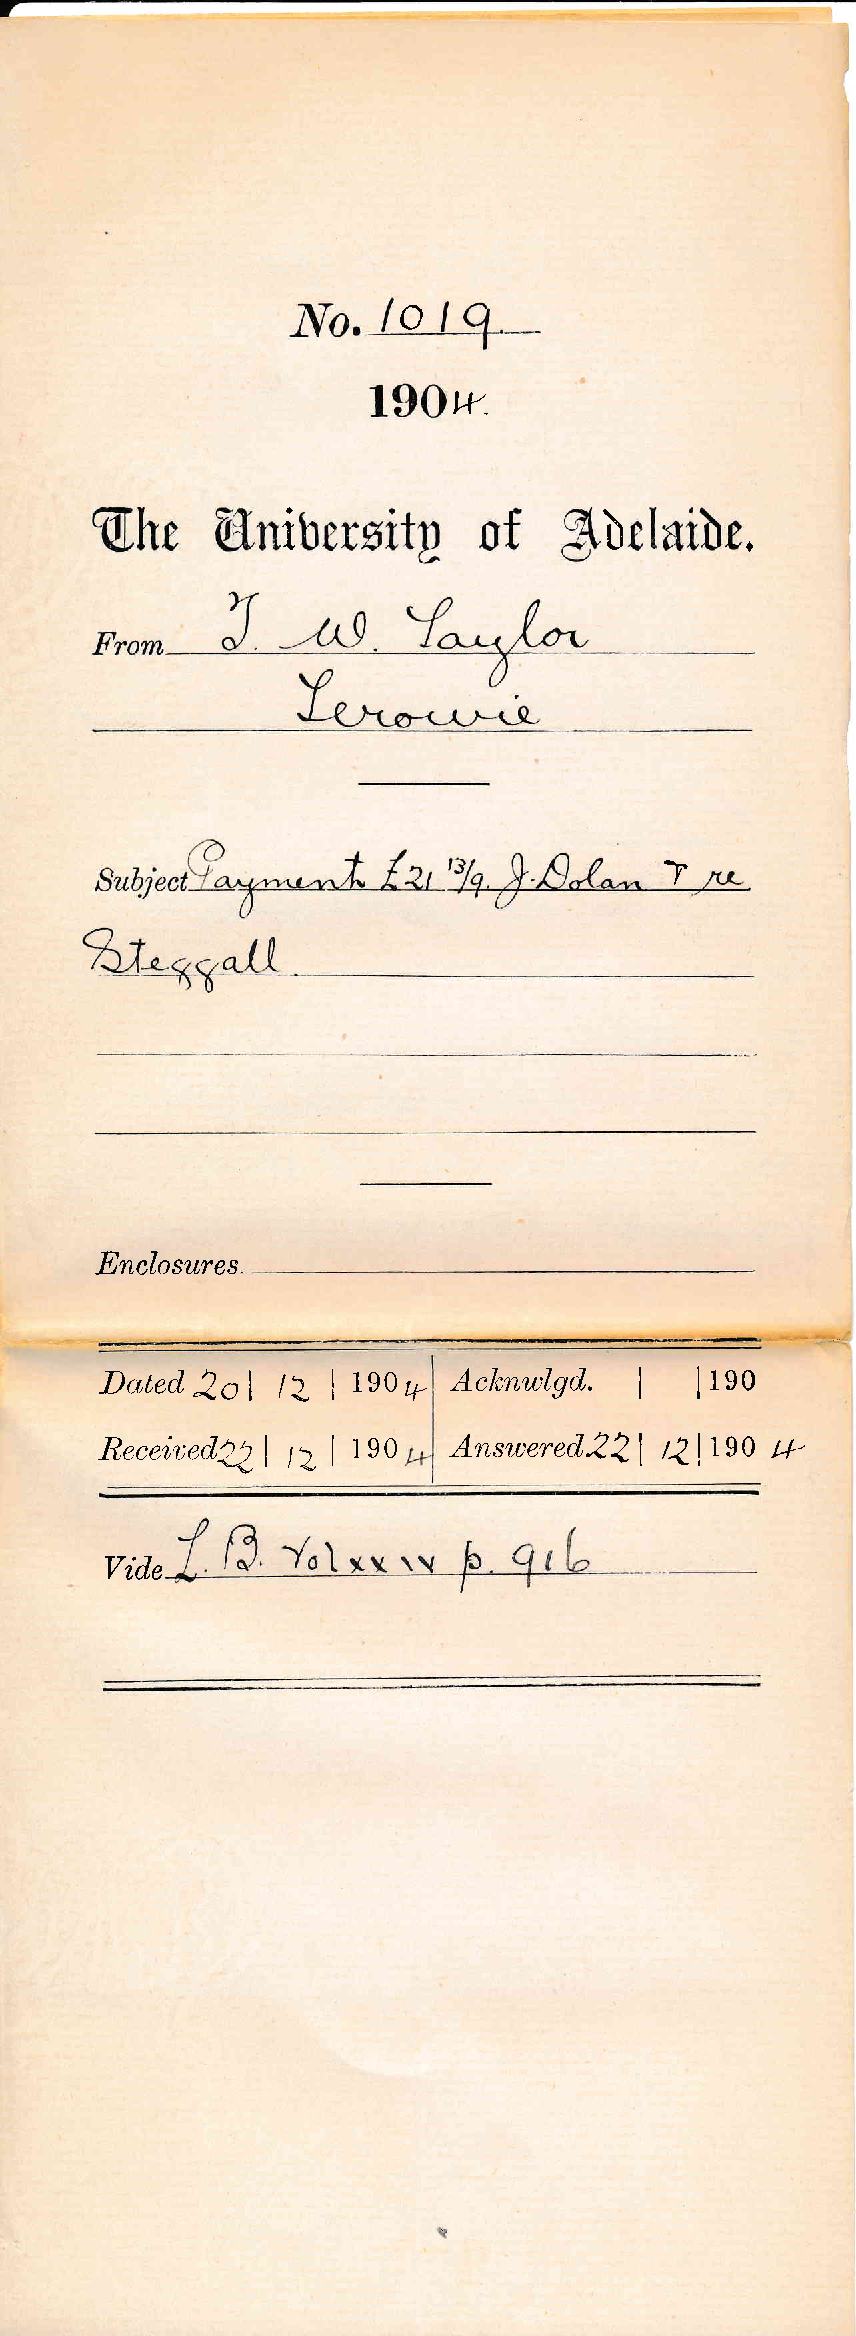 No. 1019.
1904.
The University of Adelaide.
From T. W. Taylor
Terowie
Subject Payment £21 13/9. J. Dolan & re
Steggall.
Enclosures.
Dated 20 | 12 | 1904 Acknwlgd. | | 190
Received 22 | 12 | 1904 Answered 22 | 12 | 1904
Vide L. B. Vol xxiv p. 916